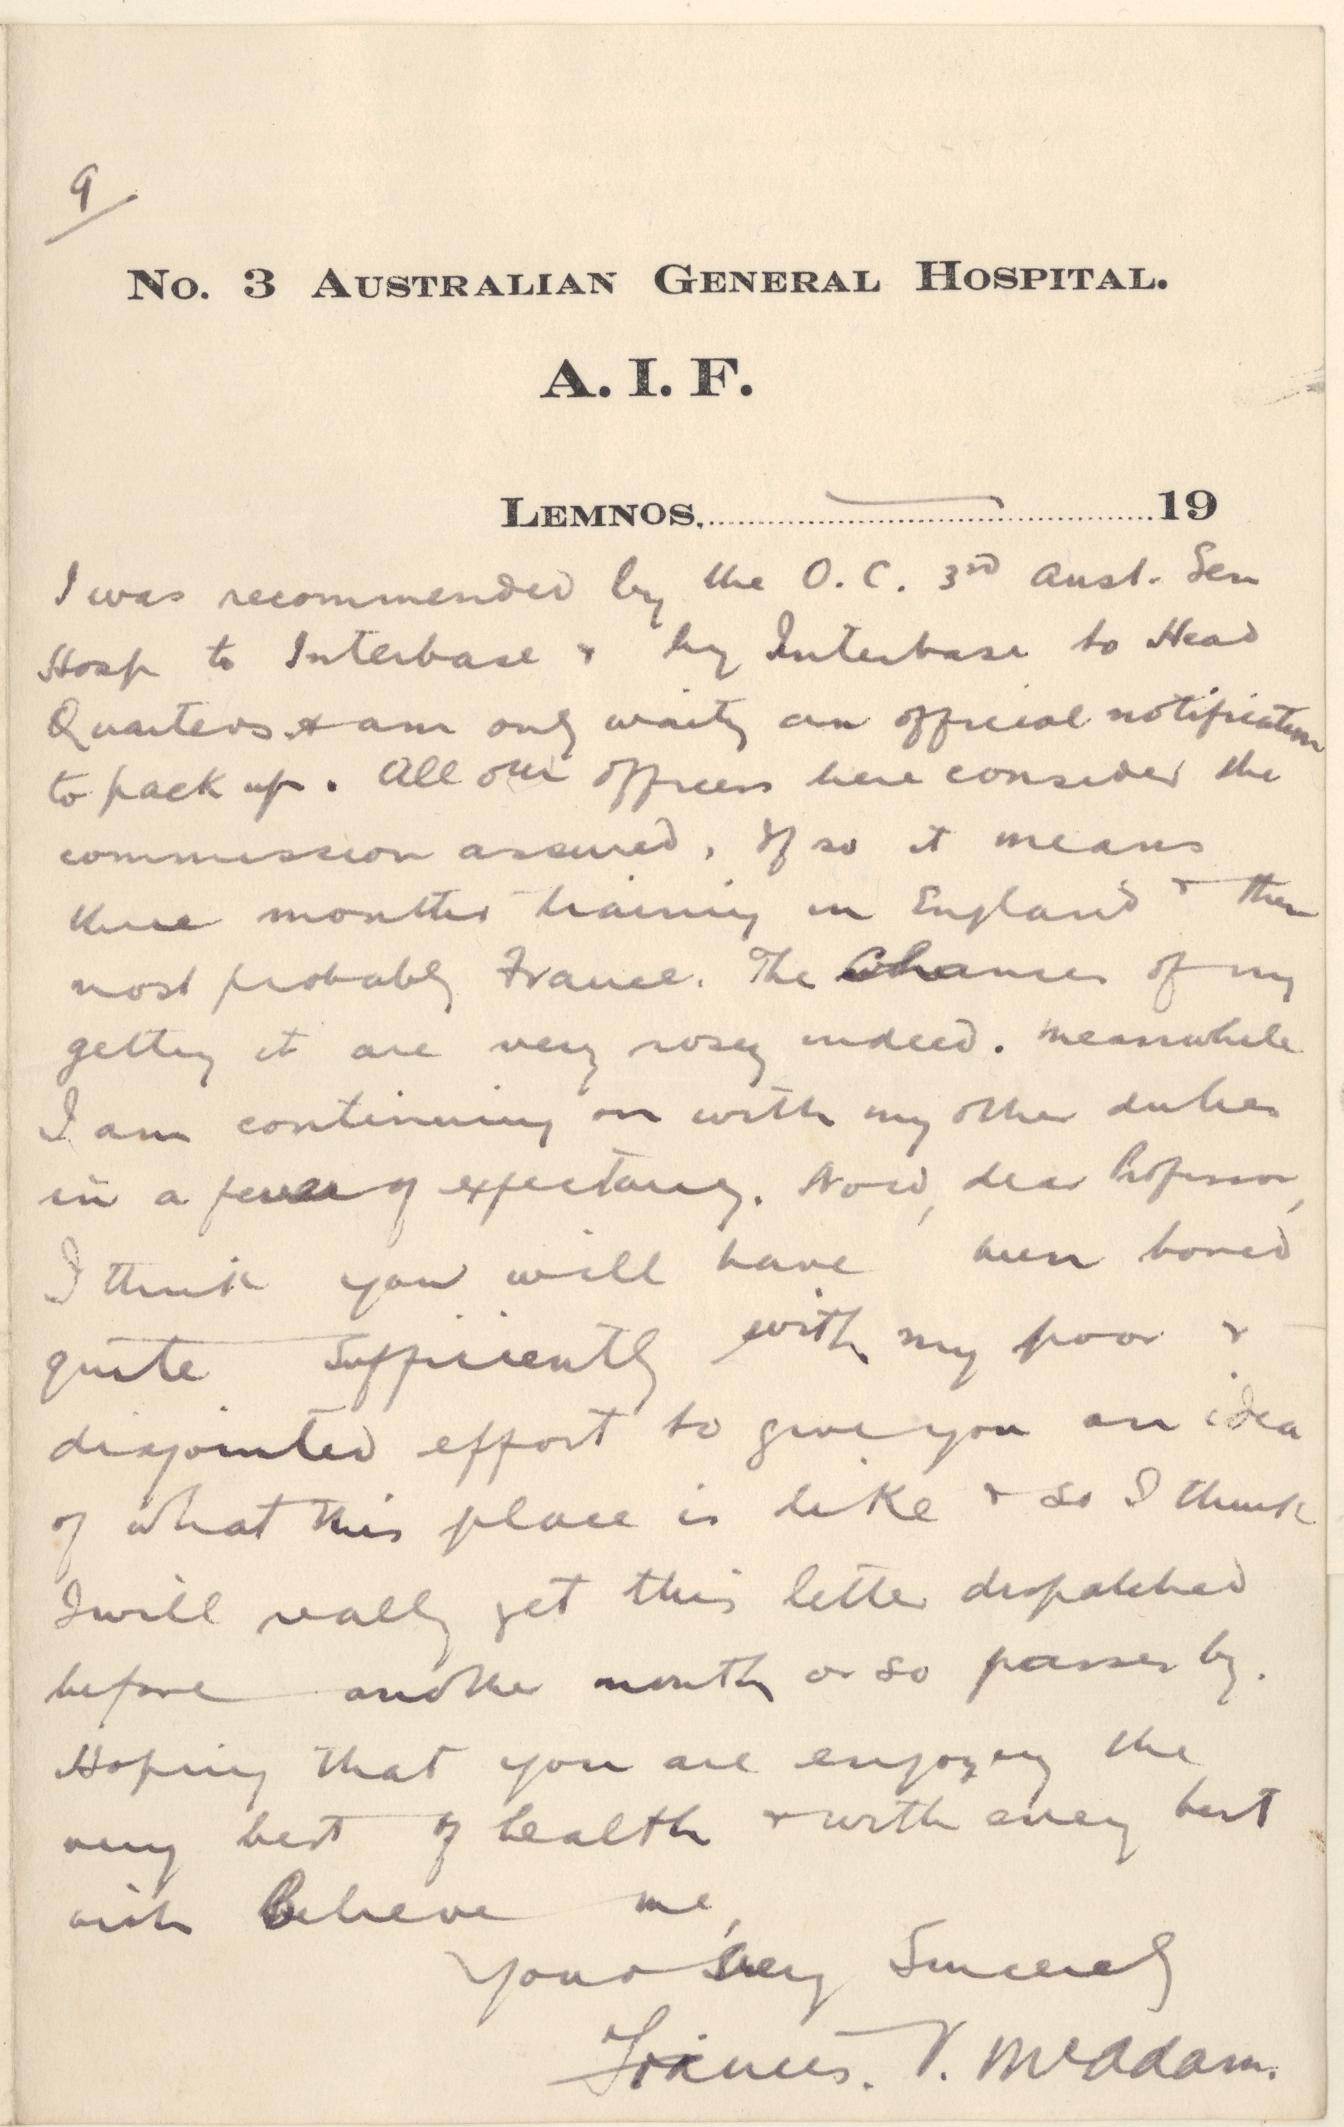 9/
No. 3 Australian General Hospital.
A. I. F.
Lemnos, 19
I was recommended by the O. C. 3rd Aust. Gen
Hosp to Interbase & by Interbase to Head
Quarters & am only waitg an official notification
to pack up. All our officers here consider the
commission assured, If so it means
three months training in England & then
most probably France. The chances of my
getting it are very rosey indeed. Meanwhile
I am continuing on with my other duties
in a fever of expectancy. Now, dear Professor,
I think you will have been bored
quite sufficiently with my poor &
disjointed effort to give you an idea
of what this place is like & so I think
I will really get this letter dispatched
before another month or so passes by.
Hoping that you are enjoying the
very best of health & with every best
wish Believe me,
Yours Very Sincerely
Francis. V. McAdam.